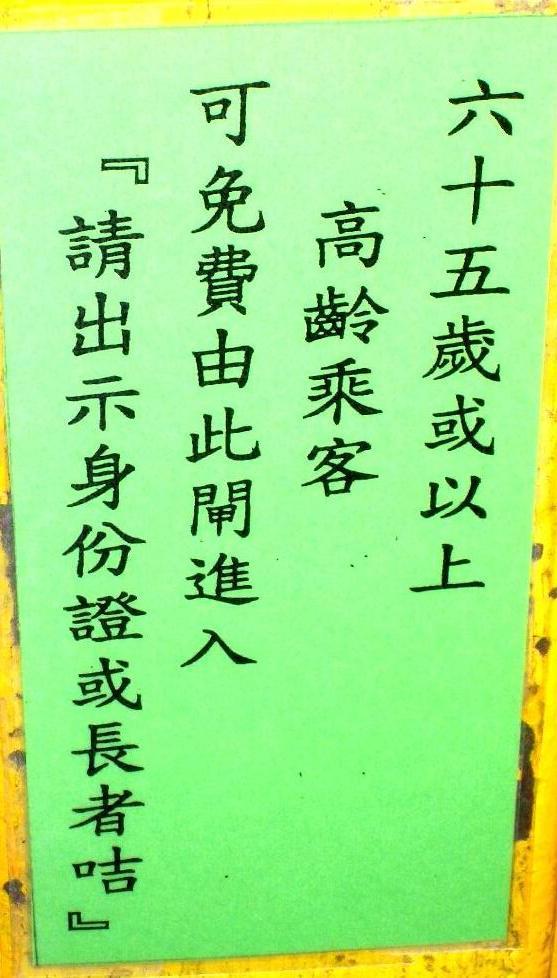 六十五歲或以上
高齡乘客
可免費由此閘進入
『請出示身份證或長者咭』